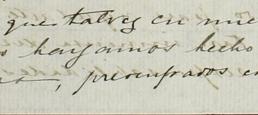 que talvez en nue
hayamos hecho
, preocupados en